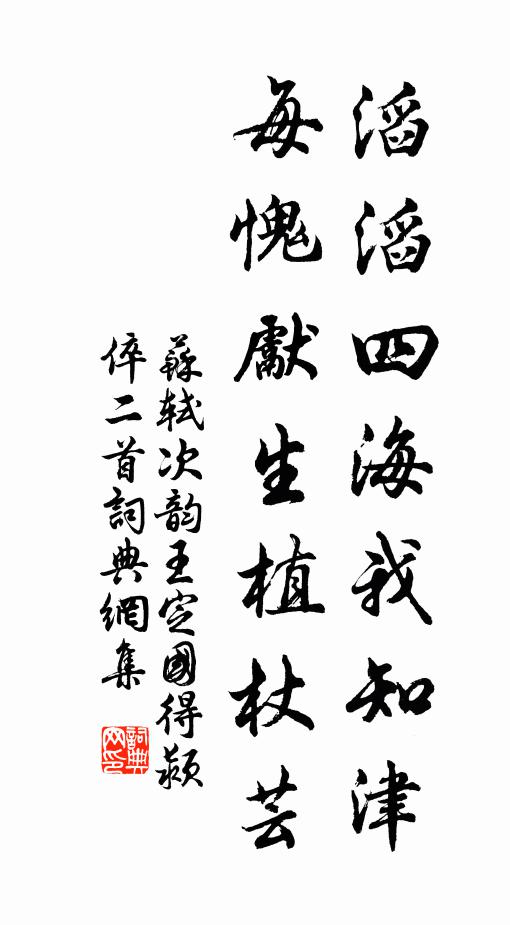 滔滔四海我知津
每愧獻生植杖芸
蘇軾次韵王定國得颍
倅二首詞典網集
詞典
网印